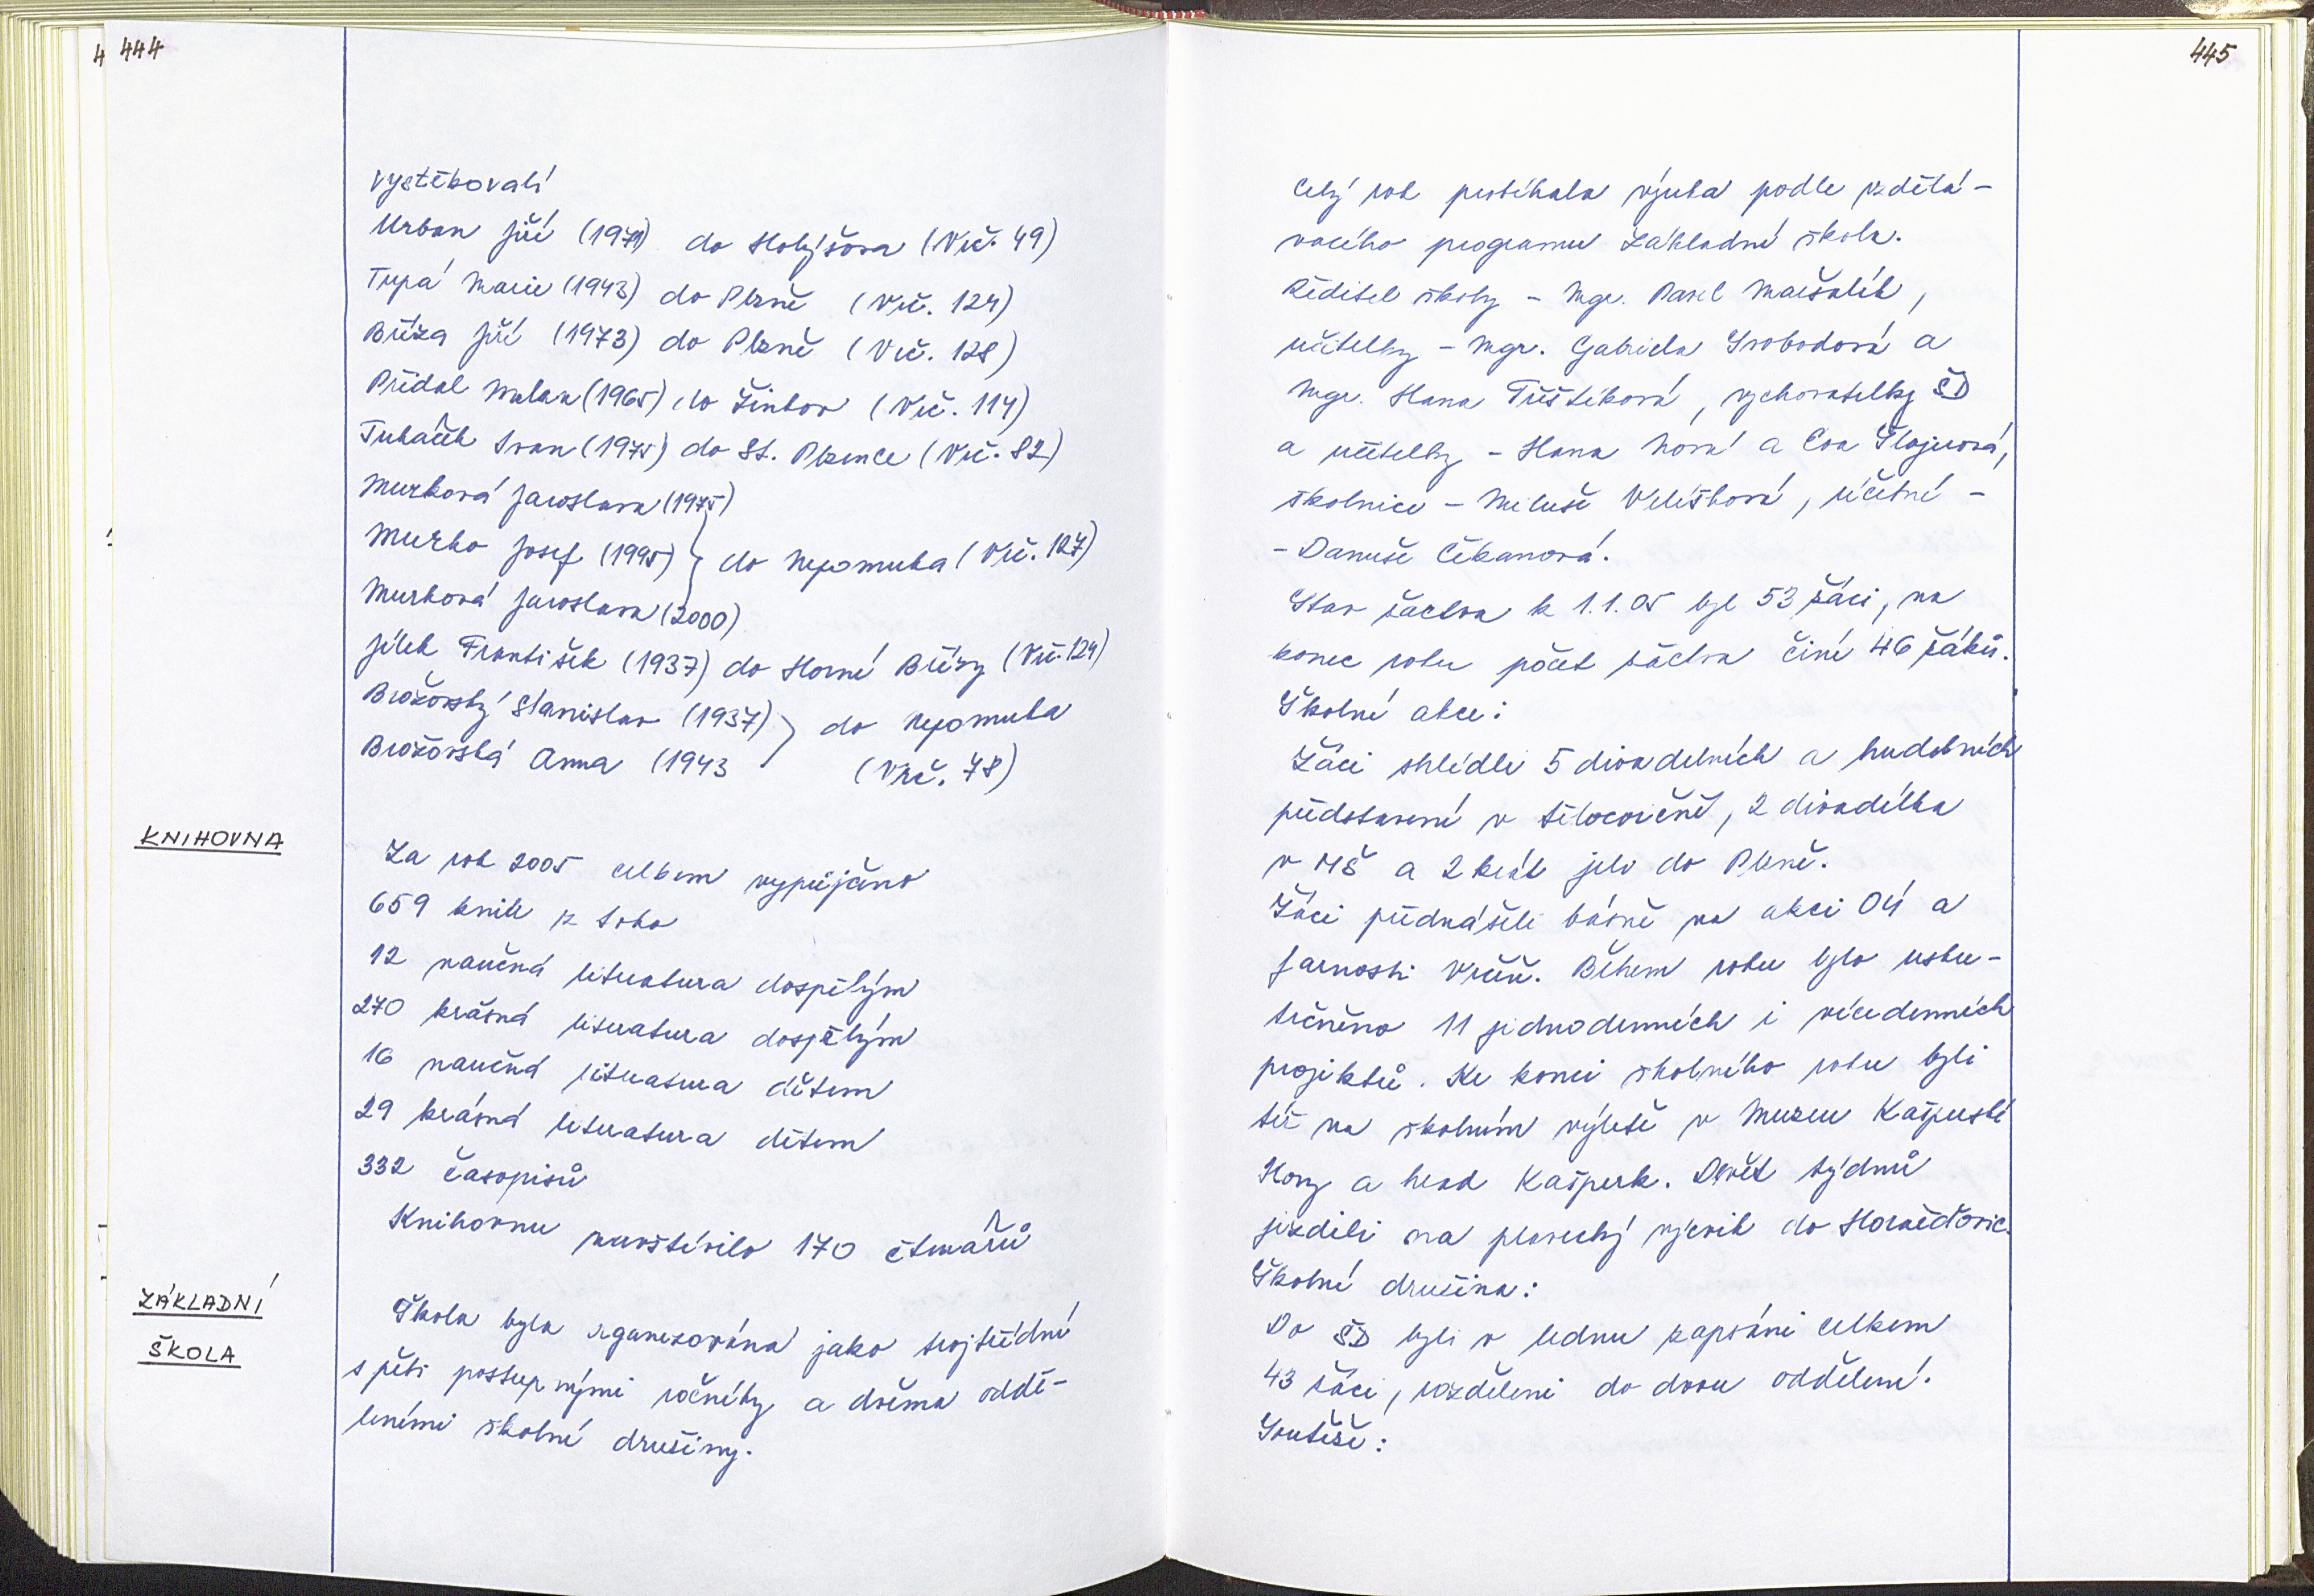 444
vystěhovalí
Urban Jiří (1971) do Holýšova (Vrč. 49)
Tupá Marie (1943) do Plzně (Vrč. 124)
Bříza Jiří (1973) do Plzně (Vrč. 128)
Přidal Milan (1965) do Žinkov (Vrč. 114)
Tukaček Ivan (1975) do St. Plzence (Vrč. 82)
Murková Jaroslava (1975)
Murko Josef (1995) } do Nepomuka (Vrč. 127)
Murková Jaroslava (2000)
Jílek František (1937) do Horní Břízy (Vrč. 124)
Brožovský Stanislav (1937) } do Nepomuka
Brožovská Anna (1943 (Vrč. 78)
KNIHOVNA
Za rok 2005 celkem vypůjčeno
659 knih z toho
12 naučná literatura dospělým
270 krásná literatura dospělým
16 naučná literatura dětem
29 krásná literatura dětem
332 časopisů
Knihovnu navštívilo 170 čtenářů
ZÁKLADNÍ
ŠKOLA
Škola byla organizována jako trojtřídní
s pěti postupnými ročníky a dvěma oddě-
leními školní družiny.
445
Celý rok probíhala výuka podle vzdělá-
vacího programu Základní škola.
Ředitel školy - Mgr. Pavel Maršalík,
učitelky - Mgr. Gabriela Svobodová a
Mgr. Hana Tříštíková, vychovatelky ŠD
a učitelky - Hana Nová a Eva Šlajsová,
školnice - Miluše Velíšková, účetní -
- Danuše Čekanová.
Stav žactva k 1.1.05 byl 53 žáci, na
konec roku počet žáctva činí 46 žáků.
Školní akce:
Žáci shlédli 5 divadelních a hudebních
představení v tělocvičně, 2 divadélka
v MŠ a 2 krát jelo do Plzně.
Žáci přednášeli básně na akci OÚ a
farnosti Vrčeň. Během roku bylo usku-
tečněno 11 jednodenních i vícedenních
projektů. Ke konci školního roku byli
též na školním výletě v Muzeu Kašperské
Hory a hrad Kašperk. Devět týdnů
jezdili na plavecký výcvik do Horažďovic.
Školní družina:
Do ŠD byli v lednu zapsáni celkem
43 žáci, rozděleni do dvou oddělení.
Soutěže: